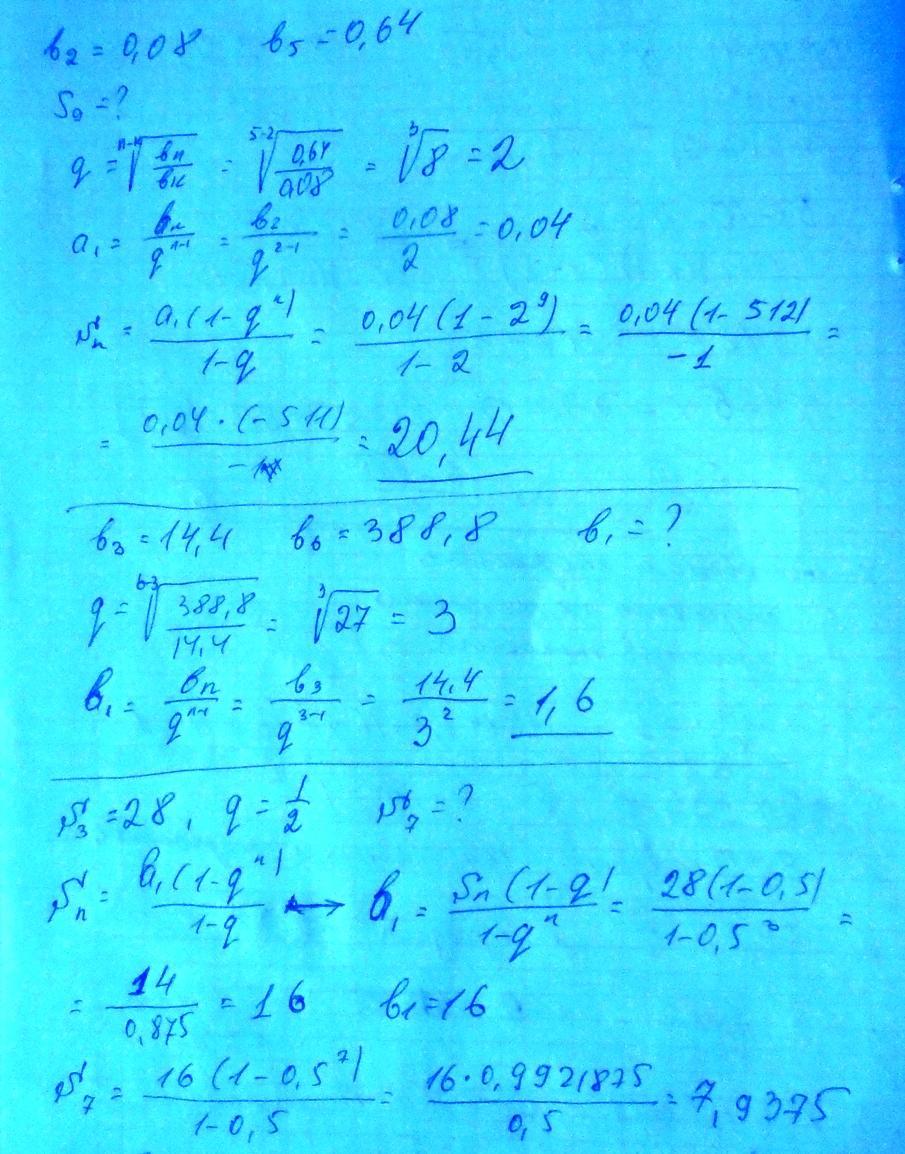 b₂ = 0,08 b₅ = 0,64
S₉ = ?
q = ⁿ⁻ᵏ√(bₙ/bₖ) = ⁵⁻²√(0,64/0,08) = ³√8 = 2
a₁ = bₙ/qⁿ⁻¹ = b₂/q²⁻¹ = 0,08/2 = 0,04
Sₙ = a₁(1-qⁿ)/1-q = 0,04(1-2⁹)/1-2 = 0,04(1-512)/-1 =
= 0,04·(-511)/-1 = 20,44
b₃ = 14,4 b₆ = 388,8 b₁ = ?
q = ⁶⁻³√(388,8/14,4) = ³√27 = 3
b₁ = bₙ/qⁿ⁻¹ = b₃/q³⁻¹ = 14,4/3² = 1,6
S₃ = 28, q = 1/2 S₇ = ?
Sₙ = b₁(1-qⁿ)/1-q ↔ b₁ = Sₙ(1-q)/1-qⁿ = 28(1-0,5)/1-0,5³ =
= 14/0,875 = 16 b₁ = 16
S₇ = 16(1-0,5⁷)/1-0,5 = 16·0,9921875/0,5 = 7,9375